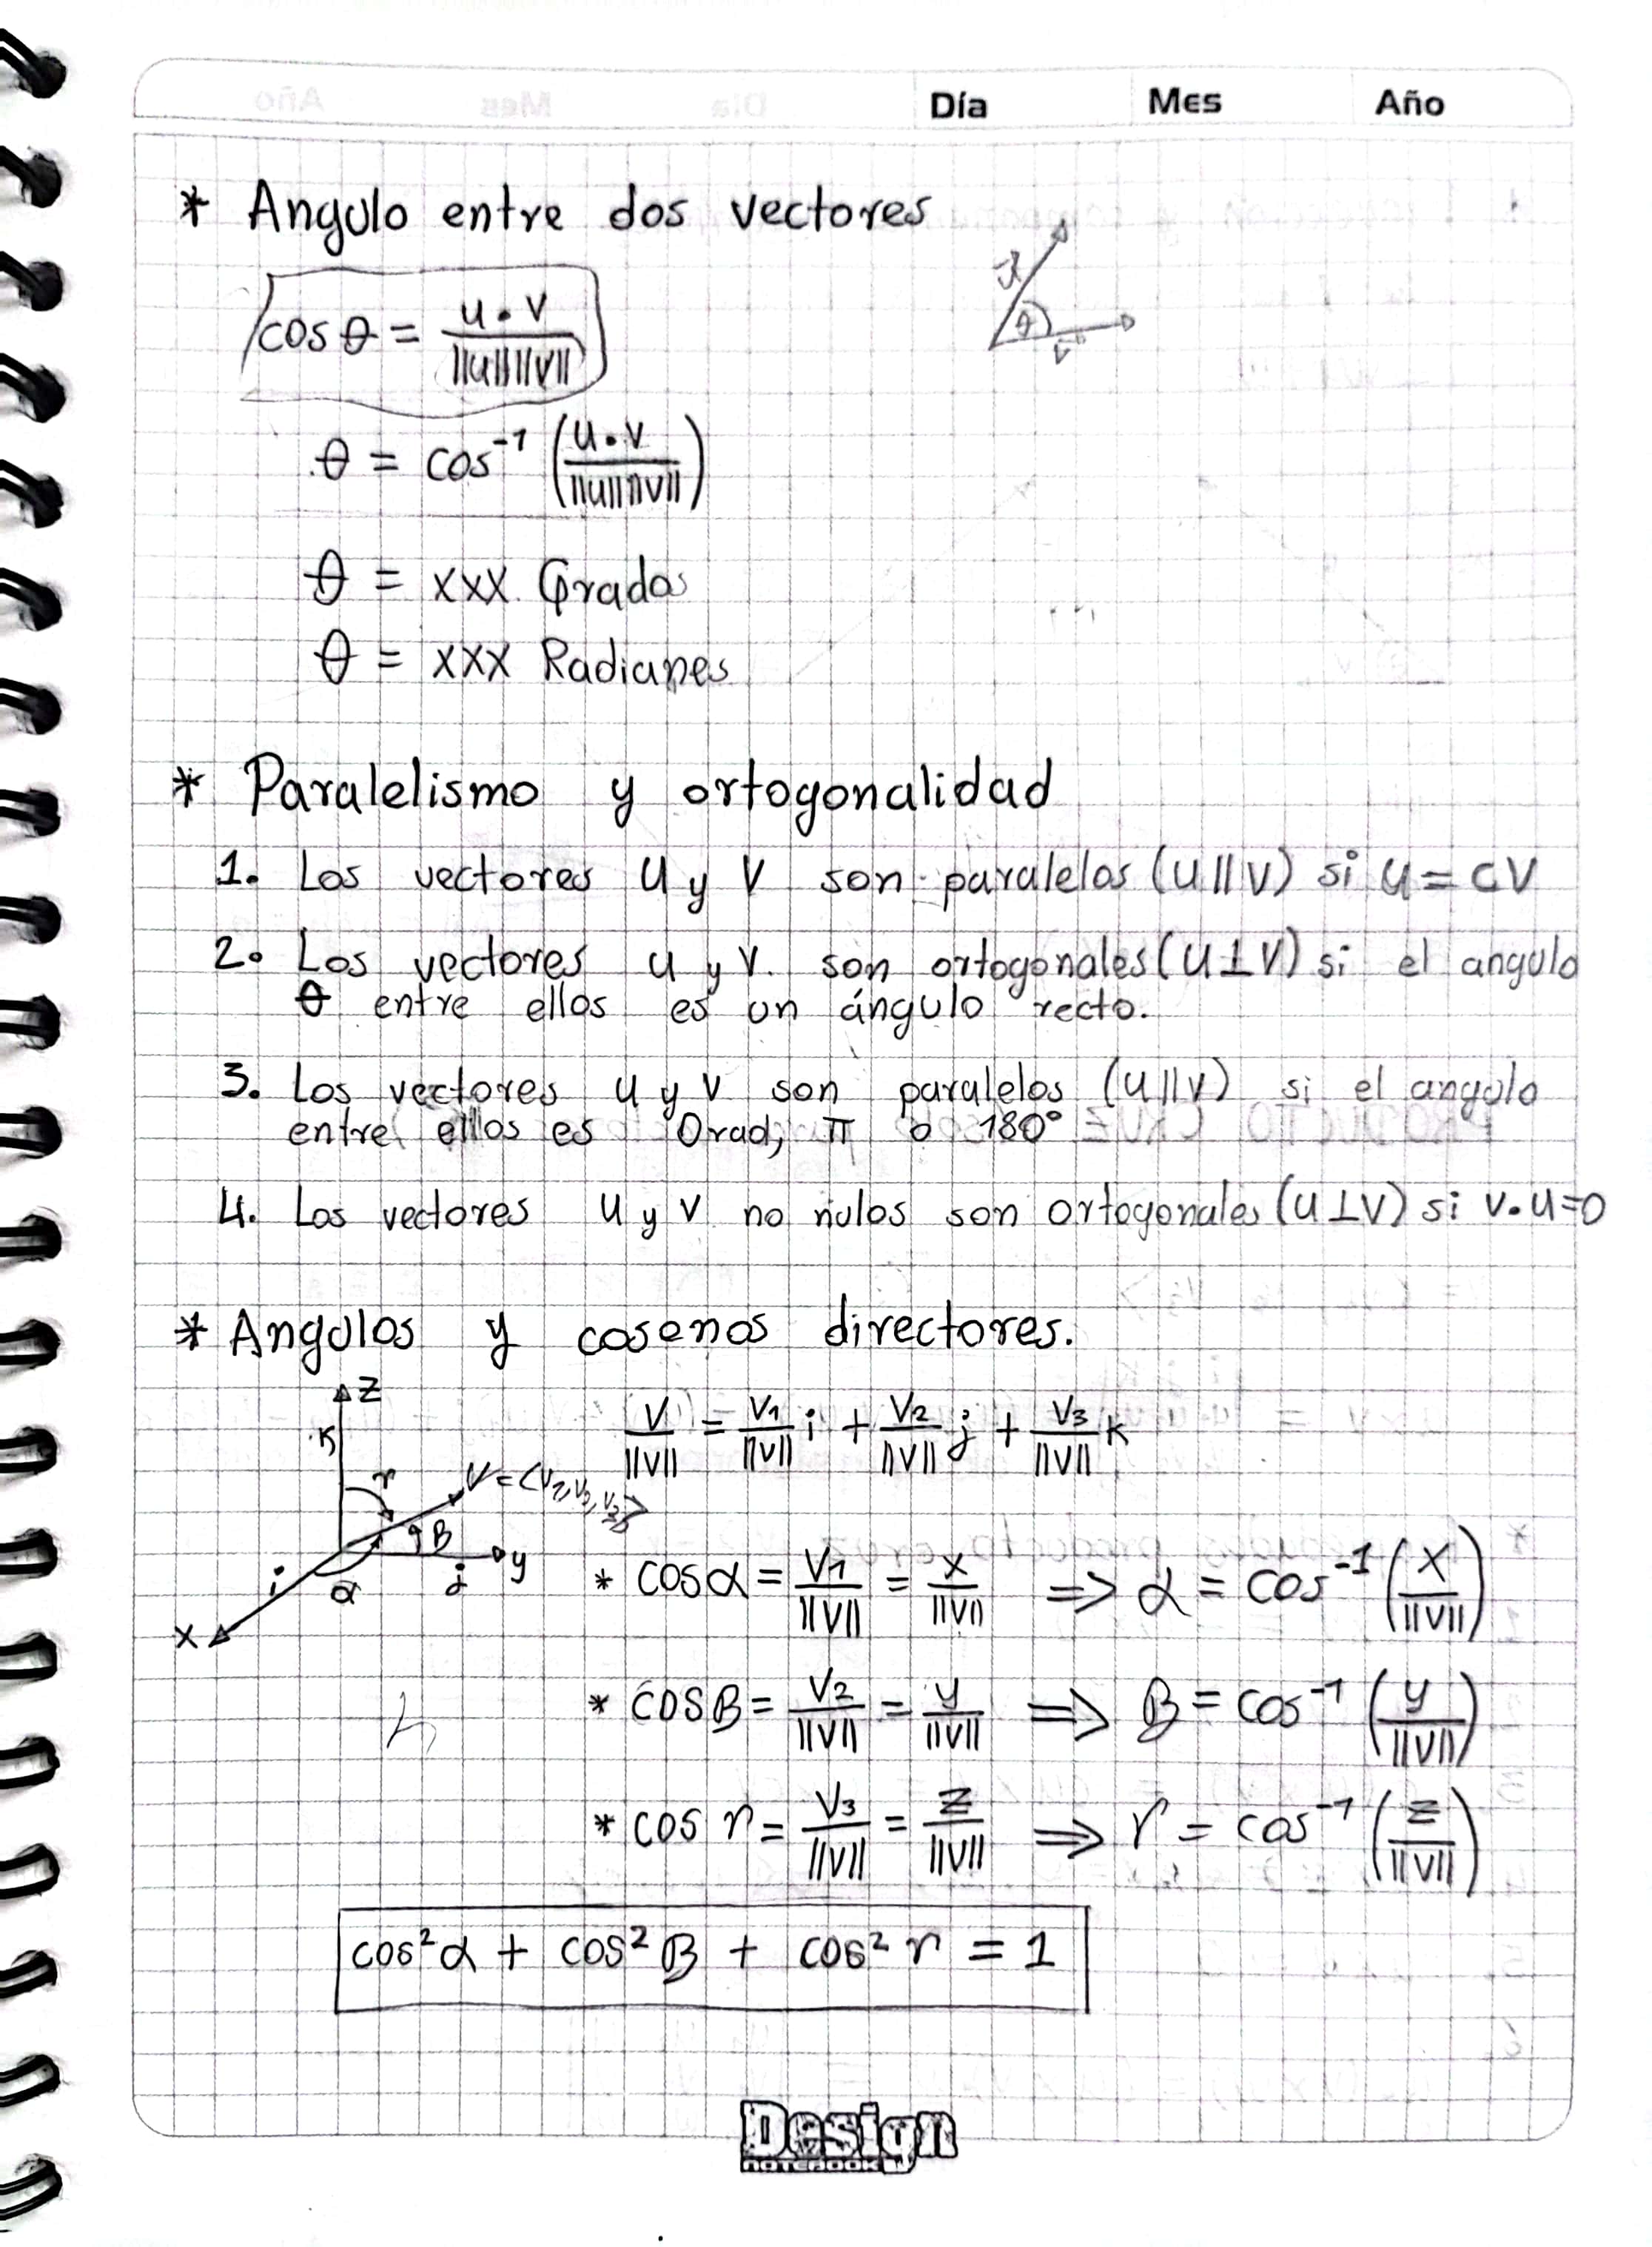 Día Mes Año
* Angulo entre dos vectores
cos θ = u • v / ||u|| ||v||
u
θ
v
θ = cos⁻¹ (u • v / ||u|| ||v||)
θ = xxx. Grados
θ = xxx Radianes
* Paralelismo y ortogonalidad
1. Los vectores u y v son paralelos (u || v) si u = cv
2. Los vectores u y v. son ortogonales (u ⊥ v) si el angulo
θ entre ellos es un ángulo recto.
3. Los vectores u y v son paralelos (u || v) si el angulo
entre ellos es 0 rad, π o 180°
4. Los vectores u y v no nulos son ortogonales (u ⊥ v) si v • u = 0
* Angulos y cosenos directores.
z
k
r
B
y
j
α
i
x
v / ||v|| = v1 / ||v|| i + v2 / ||v|| j + v3 / ||v|| k
* cos α = v1 / ||v|| = x / ||v|| => α = cos⁻¹ (x / ||v||)
* cos B = v2 / ||v|| = y / ||v|| => B = cos⁻¹ (y / ||v||)
* cos r = v3 / ||v|| = z / ||v|| => r = cos⁻¹ (z / ||v||)
cos² α + cos² B + cos² r = 1
Design
NOTEBOOK